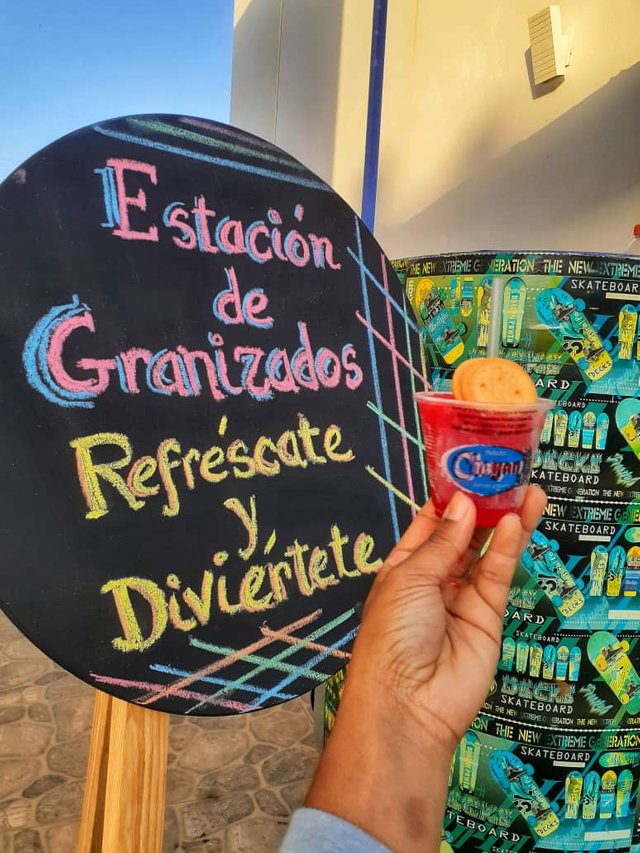 Estación
de
Granizados
Refréscate
y
Diviértete
Chuyan
THE NEW EXTREME GENERATION THE NEW EXTREME GENERATION
SKATEBOARD
DECKS
SKATEBOARD
THE NEW EXTREME GENERATION
SKATEBOARD
DECKS
SKATEBOARD
THE NEW EXTREME GENERATION
SKATEBOARD